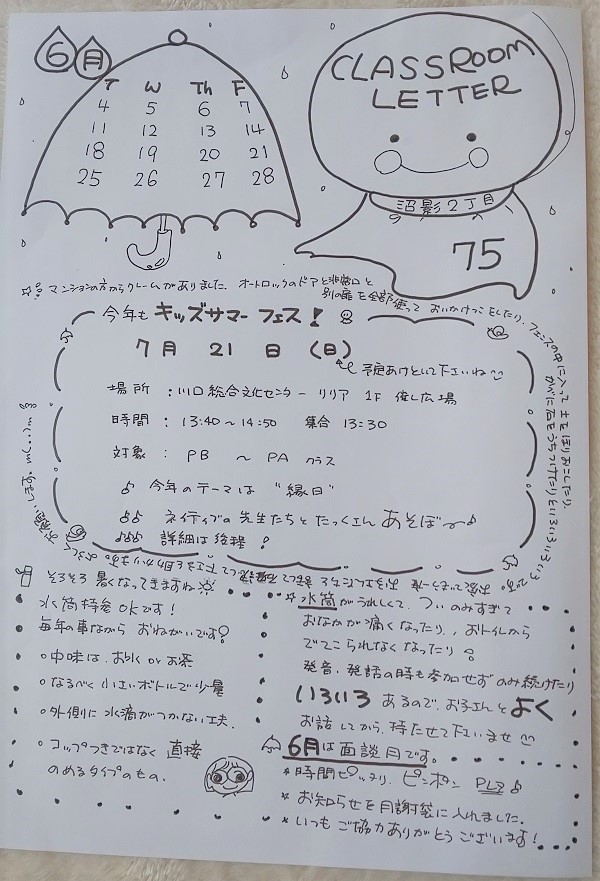 6月
T W Th F
4 5 6 7
11 12 13 14
18 19 20 21
25 26 27 28
CLASSROOM
LETTER
沼影2丁目
75
マンションの方からクレームがありました。オートロックのドアと非常口と
別の扉を全部使っておいかけっこをしたり、フェンスの中に入って土をほりおこしたり、
かべに石をうちつけたりといろいろ
今年も キッズサマーフェス!
7月 21日 (日)
予定あけといて下さいね
場所 : 川口総合文化センター リリア 1F 催し広場
時間 : 13:40〜14:50 集合 13:30
対象 : PB 〜 PA クラス
♪ 今年のテーマは “縁日”
♪♪ ネイティブの先生たちとたっくさん あそぼ〜♪
♪♪♪ 詳細は後程!
そろそろ暑くなってきますね
水筒持参OKです!
毎年の事ながら おねがいです
○中味は、お水 or お茶
○なるべく小さいボトルで少量
○外側に水滴がつかない工夫。
○コップつきではなく 直接
のめるタイプのもの。
*水筒がうれしくて、ついのみすぎて
おなかが痛くなったり、おトイレから
でてこられなくなったり
発音、発話の時も参加せずのみ続けたり
いろいろ あるので、お子さんと よく
お話してから、持たせて下さいませ
6月は面談月です。
*時間ピッタリ、ピンポン PLZ♪
*お知らせを月謝袋に入れました。
*いつもご協力ありがとうございます!